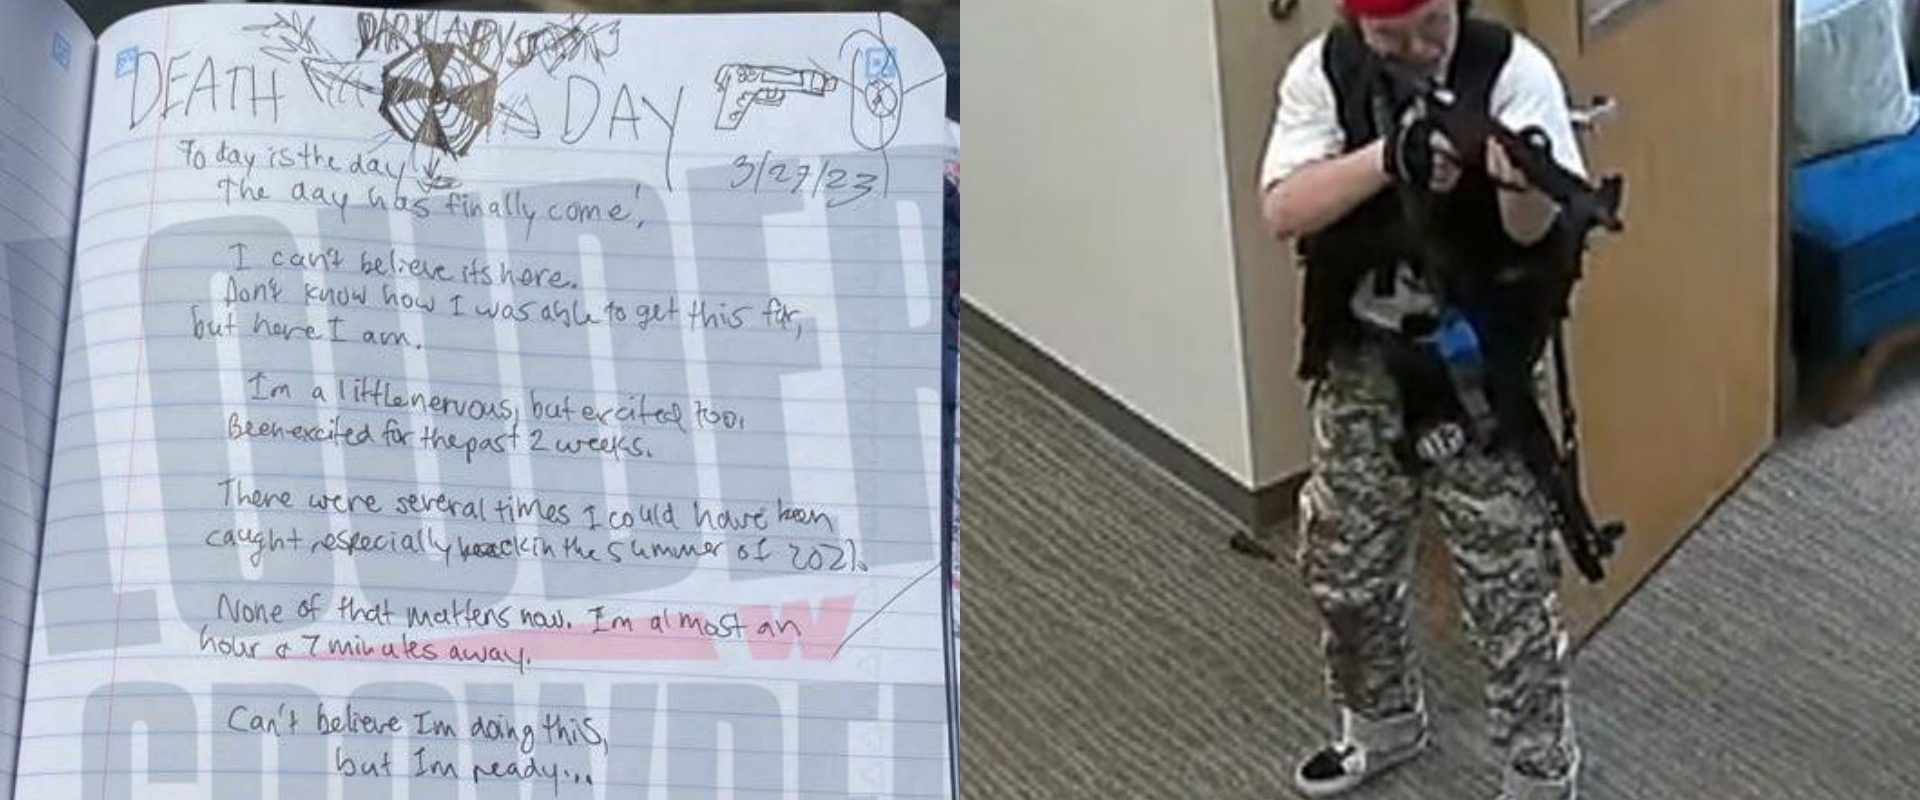 DARK ABYSS
DEATH DAY
3/27/23
Today is the day
The day has finally come!
I can't believe its here.
Don't know how I was able to get this far,
but here I am.
I'm a little nervous, but excited too.
Been excited for the past 2 weeks.
There were several times I could have been
caught, especially back in the summer of 2021.
None of that matters now. Im almost an
hour & 7 minutes away.
Can't believe Im doing this,
but Im ready...
LOUDER
W
CROWDER